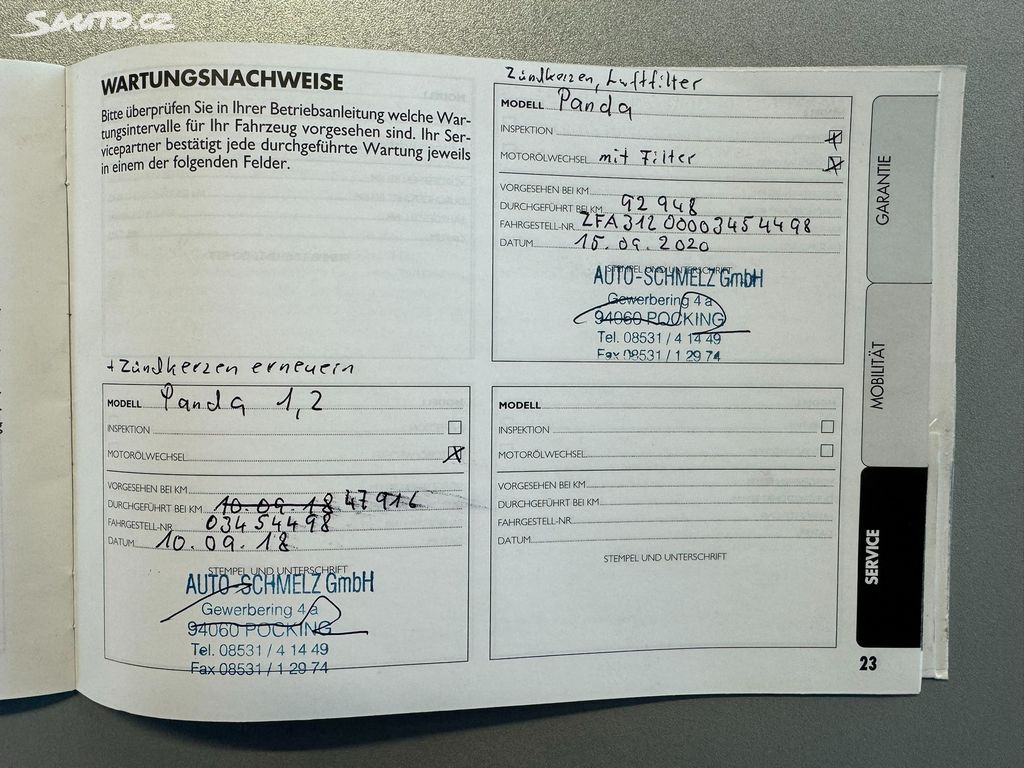 SAUTO.CZ
WARTUNGSNACHWEISE
Bitte überprüfen Sie in Ihrer Betriebsanleitung welche War-
tungsintervalle für Ihr Fahrzeug vorgesehen sind. Ihr Ser-
vicepartner bestätigt jede durchgeführte Wartung jeweils
in einem der folgenden Felder.
Zündkerzen, Luftfilter
MODELL Panda
INSPEKTION
MOTORÖLWECHSEL mit Filter
VORGESEHEN BEI KM
DURCHGEFÜHRT BEI KM 92 948
FAHRGESTELL-NR. ZFA31200003454498
DATUM 15.09.2020
STEMPEL UND UNTERSCHRIFT
AUTO-SCHMELZ GmbH
Gewerbering 4 a
94060 POCKING
Tel. 08531 / 4 14 49
Fax 08531 / 1 29 74
+ Zündkerzen erneuern
MODELL Panda 1,2
INSPEKTION
MOTORÖLWECHSEL
VORGESEHEN BEI KM
DURCHGEFÜHRT BEI KM 10.09.18 47916
FAHRGESTELL-NR. 03454498
DATUM 10.09.18
STEMPEL UND UNTERSCHRIFT
AUTO-SCHMELZ GmbH
Gewerbering 4 a
94060 POCKING
Tel. 08531 / 4 14 49
Fax 08531 / 1 29 74
MODELL
INSPEKTION
MOTORÖLWECHSEL
VORGESEHEN BEI KM
DURCHGEFÜHRT BEI KM
FAHRGESTELL-NR.
DATUM
STEMPEL UND UNTERSCHRIFT
GARANTIE
MOBILITÄT
SERVICE
23